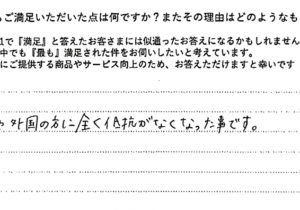 もご満足いただいた点は何ですか？またその理由はどのようなも
1で『満足』と答えたお客さまには似通ったお答えになるかもしれません
中でも『最も』満足された件をお伺いしたいと考えています。
にご提供する商品やサービス向上のため、お答えただけますと幸いです
外国の方に全く抵抗がなくなった事です。